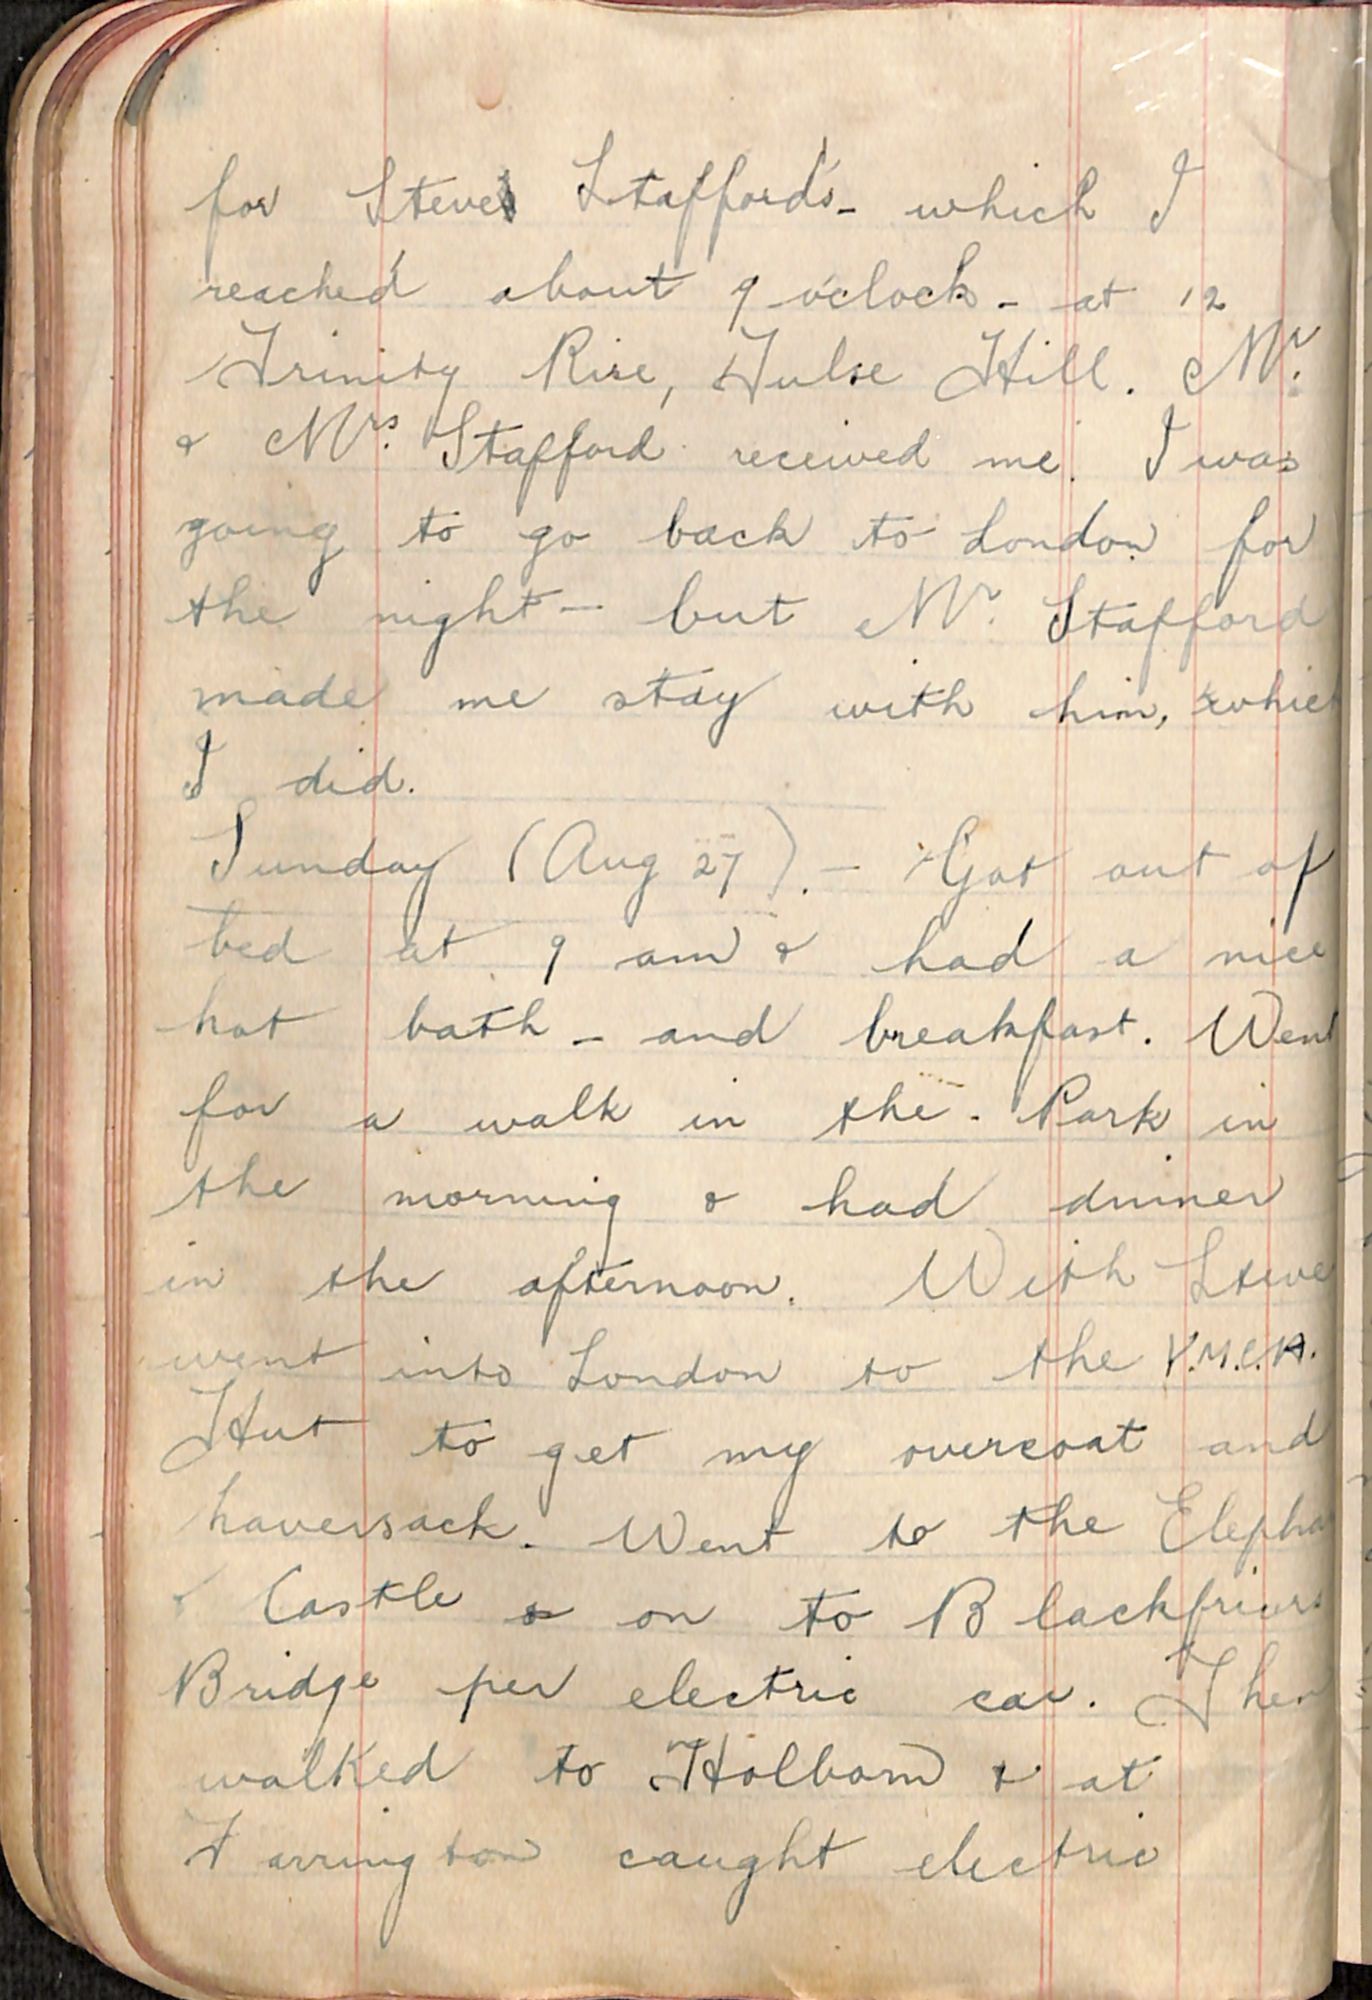 for Steve Stafford's - which I
reached about 9 o'clock - at 12
Trinity Rise, Tulse Hill. Mr.
& Mrs. Stafford received me. I was
going to go back to London for
the night - but Mr. Stafford
made me stay with him, which
I did.
Sunday (Aug 27). - Got out of
bed at 9 am & had a nice
hot bath - and breakfast. Went
for a walk in the - Park in
the morning & had dinner
in the afternoon. With Steve
went into London to the Y.M.C.A.
Hut to get my overcoat and
haversack. Went to the Elepha
& Castle & on to Blackfriars
Bridge per electric car. Then
walked to Holborn & at
Farrington caught electric